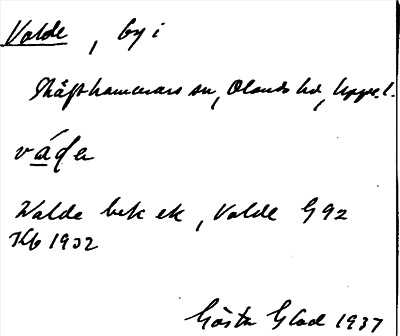 Valde, by i
Skäfthammars sn, Olands hd, Uppl.
váda
Walde bek ek, Valde G 92
Kb 1932
Gösta Glad 1937